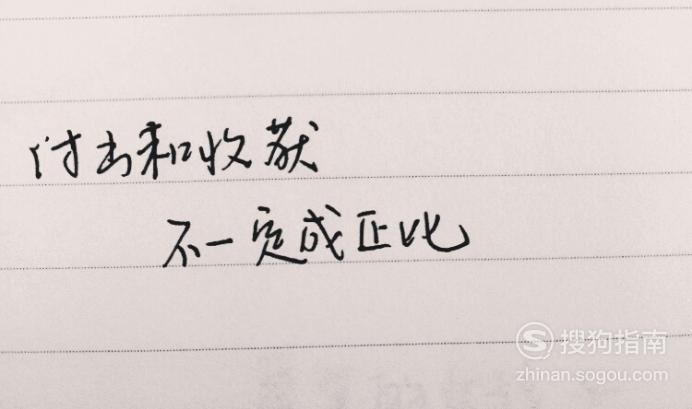 付出和收获
不一定成正比
搜狗指南
zhinan.sogou.com